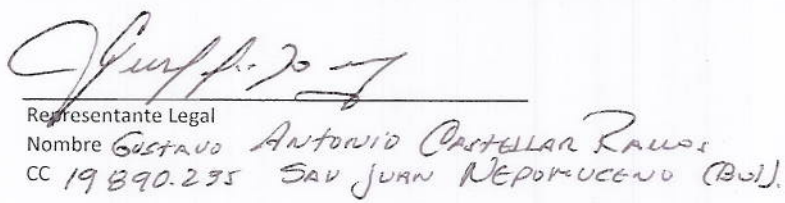 Representante Legal
Nombre GUSTAVO ANTONIO CASTELLAR RAMOS
CC 19890.235 SAN JUAN NEPOMUCENO (Bol).